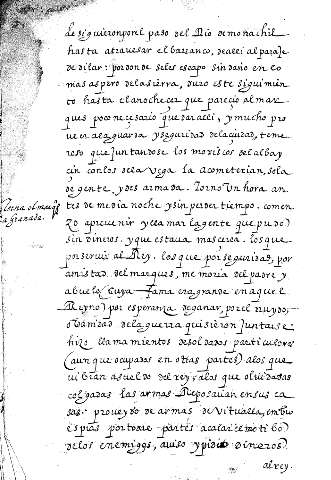 le siguieron por el paso del Rio de monachil
hasta atravesar el barranco, de alli al paraje
de dilar: por donde seles escapo sin daño en lo
mas aspero de la sierra, duro este siguimien
to hasta el anochecer que pareçio al mar
ques poco neçesario quedar alli, y mucho pro
veer a la guarda y seguridad de la çiudad, teme
roso que Juntandose los moriscos del albay
çin con los de la Vega la acometerian, sola
de gente, y des armada. Torno Vn hora an
tes de media noche y sin perder tiempo. comen
zo aprevenir y llamar la gente que pudo
sin dineros. y que estava mas çerca. los que
por servir al Rey. los que por seguridad, por
amistad del marques, memoria del padre y
abuelo (Cuya fama era grande en aquel
Reyno) por esperança de ganar, por el ruydo,
o vanidad de la guerra quisieron Juntarse
hizo llamamientos de soldados particulares
(aun que ocupados en otras partes) a los que
vibian a sueldo del rey; a los que olvidadas
colgadas las armas Reposavan en sus ca
sas. proueydo de armas de Vitualla, embio
espias por todas partes a calar el motibo
de los enemigos, aviso y pidio dineros
al rey.